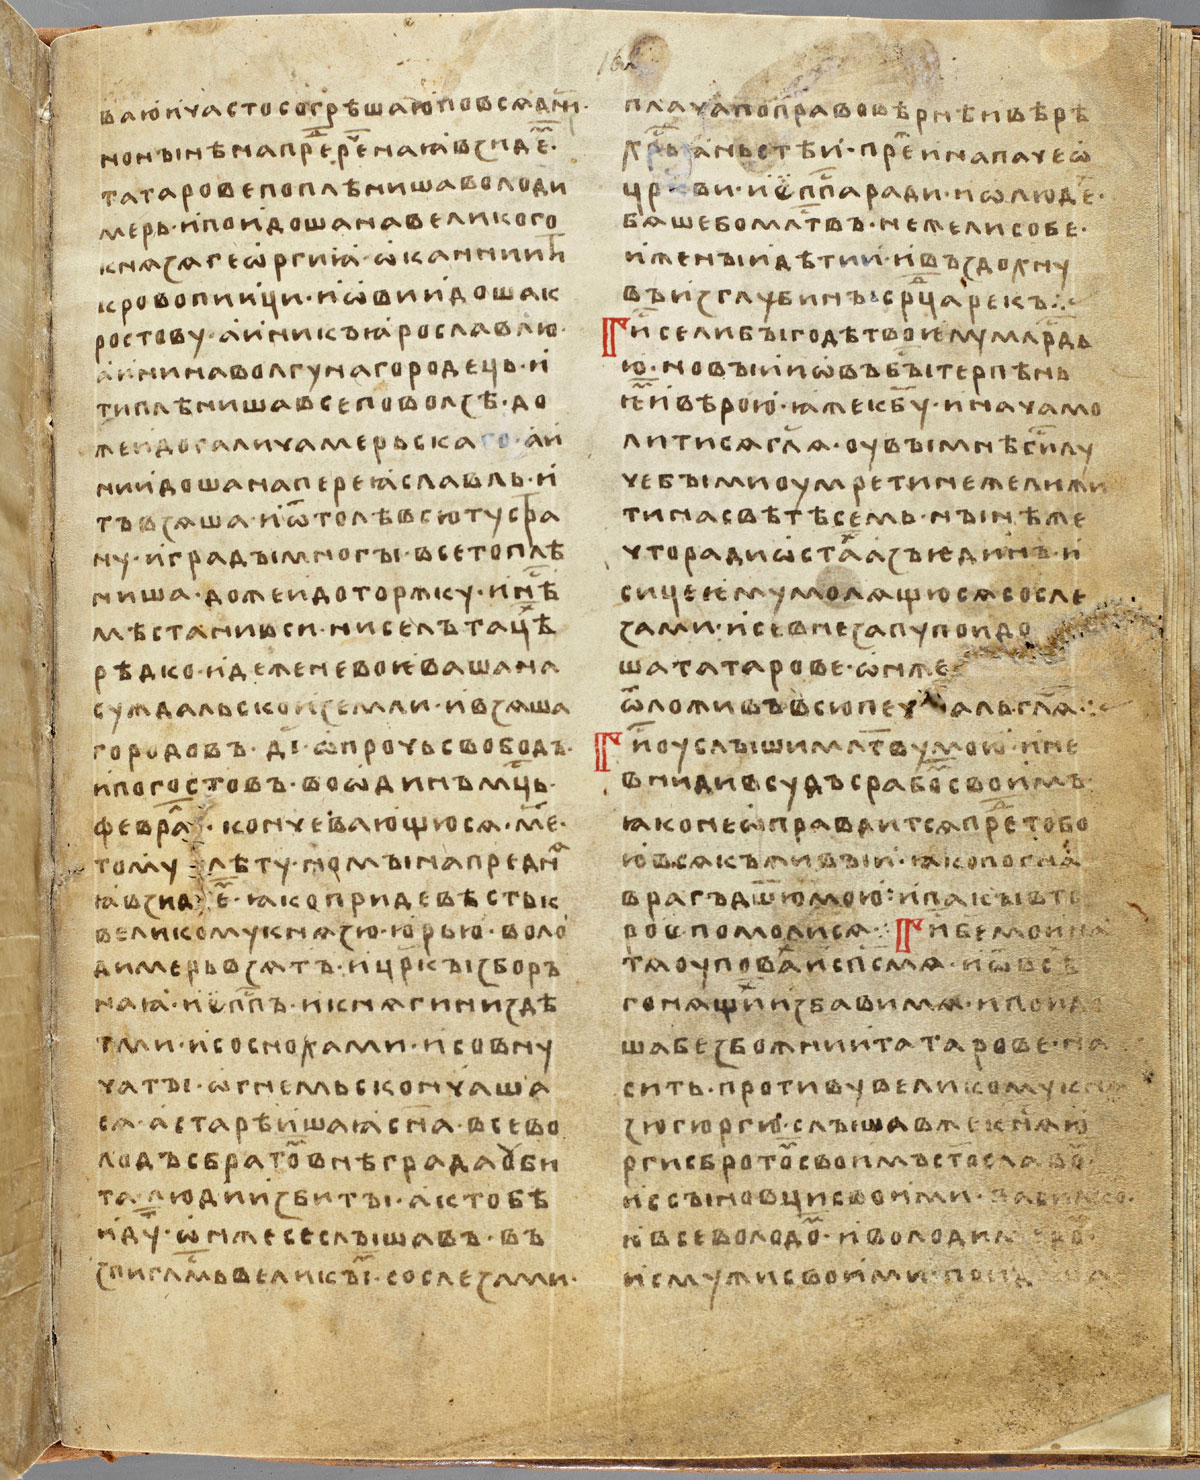 ваю и часто согрѣшаю по всѧ дн҃и·
но нын̑ѣ на пре҃дре҃ченаꙗ взиде҃м·
татарове поплѣниша володи
мерь· и поидоша на великого
кнѧзѧ геѡргиꙗ· ѡканнии ти
кровопиици· и ѡви идоша к
ростову· а ини къ ꙗрославлю·
а ини на волгу на городець· и
ти плѣниша все по волзѣ· до
же и до галича мерьскаго· а и
нии идоша на переꙗславль· и
тъ взѧша· и ѿтолѣ всю ту стра
ну· и грады многы· все то плѣ
ниша· доже и до торжку· и нѣс
мѣста ни вси· ни селъ тацѣх
рѣдко· идеже не воеваша на
суждальскои земли· и взѧша
городовъ· д҃і· ѡпрочь свободъ·
и погостовъ· во ѡдинъ мс҃ць·
феврал· кончевающюсѧ· м҃е·
тому лѣту· но мы на предн
ꙗ взидем· ꙗко приде вѣсть к
великому кнѧзю· юрью· воло
димерь взѧтъ· и цр҃кы збор
наꙗ· и еп҃пъ· и кнѧгини з дѣ
тми· и со снохами· и со вну
чаты· ѡгнемь скончаша
сѧ· а старѣишаꙗ сн҃а· всево
лодъ с братом внѣ града оби
та людии збиты· а к тобѣ
идут· ѡн же се слышавъ· въ
зпи глс҃мь великым· со слезами·
плача по правовѣрнѣи вѣрѣ
хрс҃ьꙗньстѣи· преи и наипаче ѡ
цркви· и еп҃па ради· и ѡ людех·
бѧше бо млт҃въ· нежели собе·
и жены и дѣтии· и въздохну
въ из глубины срд҃ца рек·:·
Г҃и се ли бы годѣ твоему млрд҃ь
ю· новыи иѡвъ бы терпѣнь
ем и вѣрою· ꙗже к б҃у· и нача мо
литисѧ гл҃ѧ· оувы мнѣ г҃и лу
че бы ми оумрети нежели жи
ти на свѣтѣ семь· нынѣ же
что ради ѡстах азъ единъ· и
сице ему молѧщюсѧ со сле
зами· и се внезапу поидо
ша татарове· ѡн же
ѿложивъ всю печаль гл҃ѧ·:·
Г҃и оуслыши млт҃ву мою· и не
вниди в судъ с рабом своимъ·
ꙗко не ѡправдитсѧ пред тобо
ю всѧкъ живыи· ꙗко погна
врагъ дш҃ю мою· и пакы вто
рое помолисѧ· Г҃и бе мои на
тѧ оуповах и сп҃си мѧ· и ѿ всѣх
гонѧщих избави мѧ· и поидо
ша безбожнии татарове· на
сить· противу великому кнѧ
зю гюргю· слышав же кнѧз ю
рги с бротом своимъ ст҃ославом·
и с сыновци своими· василком·
и всеволодом· и володимером·
и с мужи своими· поидоша